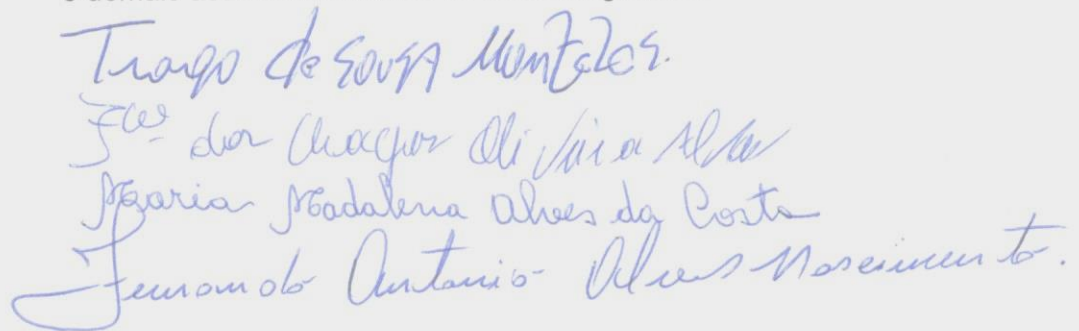 Tiago de Sousa Montelos.
Fco das Chagas Oliveira Alves
Maria Madalena Alves da Costa
Fernando Antonio Alves Nascimento.